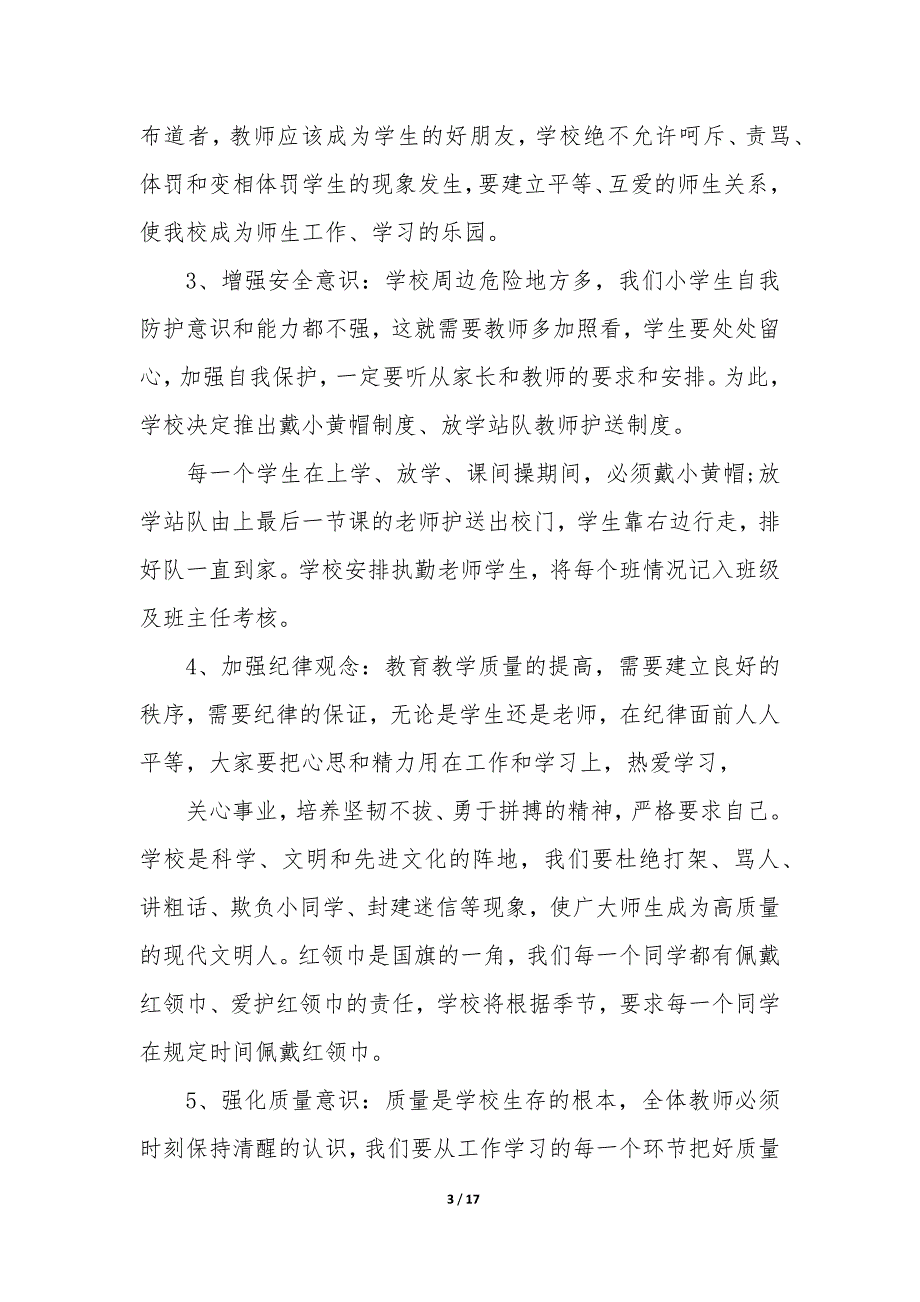 布道者，教师应该成为学生的好朋友，学校绝不允许呵斥、责骂、
体罚和变相体罚学生的现象发生，要建立平等、互爱的师生关系，
使我校成为师生工作、学习的乐园。
3、增强安全意识：学校周边危险地方多，我们小学生自我
防护意识和能力都不强，这就需要教师多加照看，学生要处处留
心，加强自我保护，一定要听从家长和教师的要求和安排。为此，
学校决定推出戴小黄帽制度、放学站队教师护送制度。
每一个学生在上学、放学、课间操期间，必须戴小黄帽;放
学站队由上最后一节课的老师护送出校门，学生靠右边行走，排
好队一直到家。学校安排执勤老师学生，将每个班情况记入班级
及班主任考核。
4、加强纪律观念：教育教学质量的提高，需要建立良好的
秩序，需要纪律的保证，无论是学生还是老师，在纪律面前人人
平等，大家要把心思和精力用在工作和学习上，热爱学习，
关心事业，培养坚韧不拔、勇于拼搏的精神，严格要求自己。
学校是科学、文明和先进文化的阵地，我们要杜绝打架、骂人、
讲粗话、欺负小同学、封建迷信等现象，使广大师生成为高质量
的现代文明人。红领巾是国旗的一角，我们每一个同学都有佩戴
红领巾、爱护红领巾的责任，学校将根据季节，要求每一个同学
在规定时间佩戴红领巾。
5、强化质量意识：质量是学校生存的根本，全体教师必须
时刻保持清醒的认识，我们要从工作学习的每一个环节把好质量
3 / 17